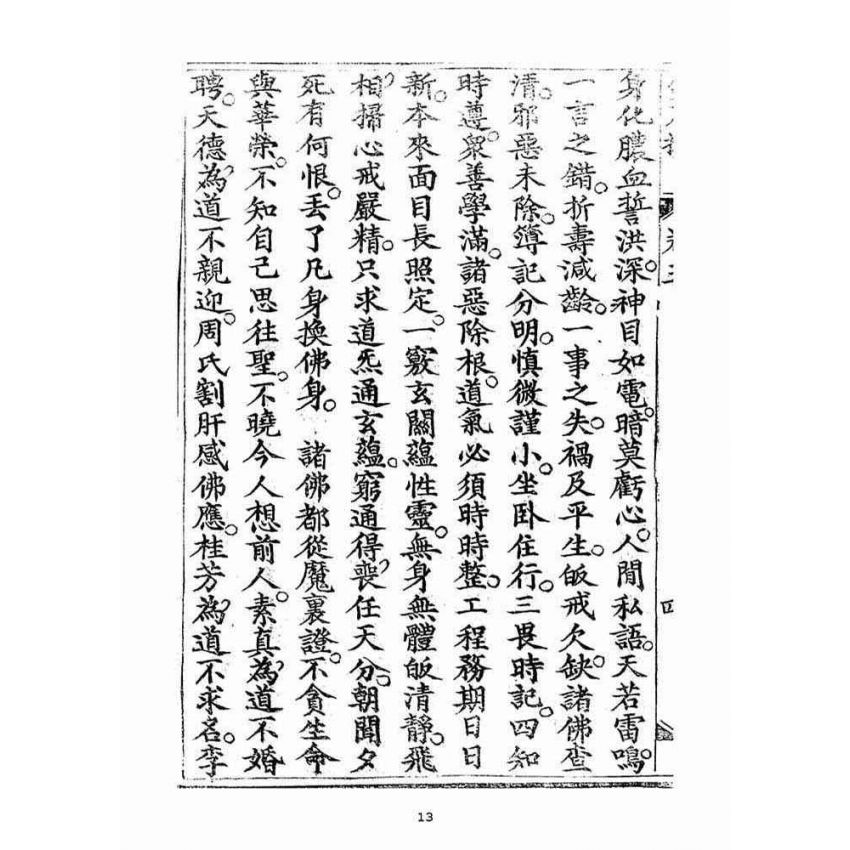 四
身化膿血誓洪深。神目如電。暗莫虧心。人間私語。天若雷鳴。
一言之錯。折壽減齡。一事之失。禍及平生。皈戒欠缺。諸佛查
清。邪惡未除。簿記分明。慎微謹小。坐卧住行。三畏時記。四知
時遵。衆善學滿。諸惡除根。道氣必須時時整。工程務期日日
新。本來面目長照定。一竅玄關蘊性靈。無身無體皈清靜。飛
相掃心戒嚴精。只求道炁通玄蘊。窮通得喪任天分。朝聞夕
死有何恨。丟了凡身換佛身。 諸佛都從魔裏證。不貪生命
與華榮。不知自己思往聖。不曉今人想前人。素真為道不婚
聘。天德為道不親迎。周氏割肝感佛應。桂芳為道不求名。李
13